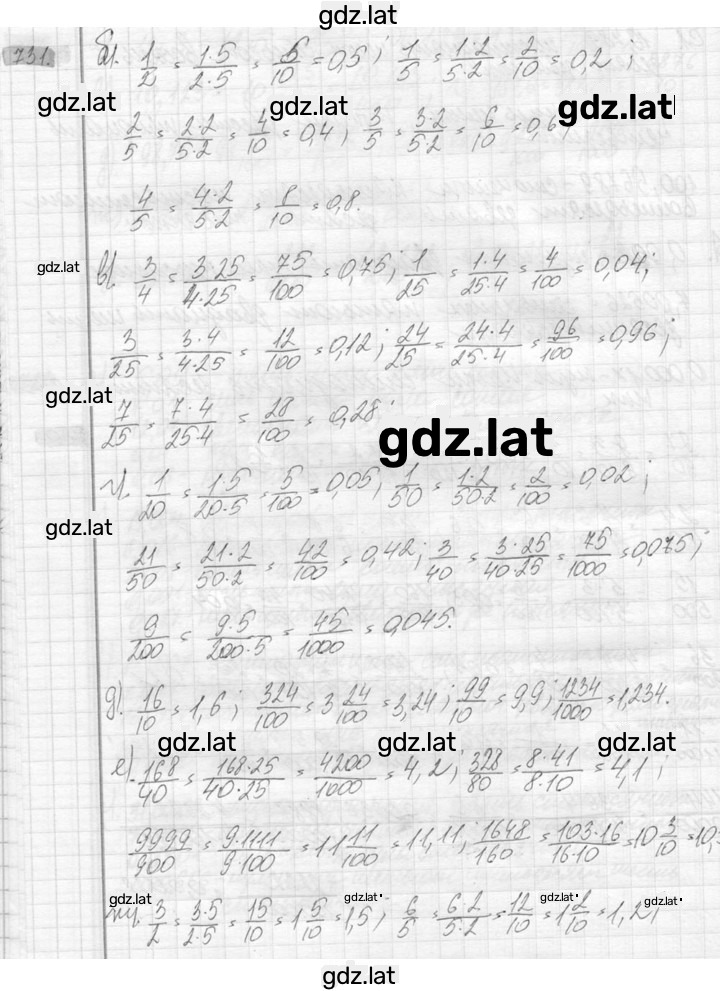 gdz.lat
731. б). 1/2 = 1·5/2·5 = 5/10 = 0,5; 1/5 = 1·2/5·2 = 2/10 = 0,2;
gdz.lat gdz.lat gdz.lat
2/5 = 2·2/5·2 = 4/10 = 0,4; 3/5 = 3·2/5·2 = 6/10 = 0,6
4/5 = 4·2/5·2 = 8/10 = 0,8.
gdz.lat
в) 3/4 = 3·25/4·25 = 75/100 = 0,75; 1/25 = 1·4/25·4 = 4/100 = 0,04;
3/25 = 3·4/4·25 = 12/100 = 0,12; 24/25 = 24·4/25·4 = 96/100 = 0,96;
gdz.lat
7/25 = 7·4/25·4 = 28/100 = 0,28;
gdz.lat
г). 1/20 = 1·5/20·5 = 5/100 = 0,05; 1/50 = 1·2/50·2 = 2/100 = 0,02;
gdz.lat
21/50 = 21·2/50·2 = 42/100 = 0,42; 3/40 = 3·25/40·25 = 75/1000 = 0,075;
9/200 = 9·5/200·5 = 45/1000 = 0,045.
д). 16/10 = 1,6; 324/100 = 3 24/100 = 3,24; 99/10 = 9,9; 1234/1000 = 1,234.
gdz.lat gdz.lat gdz.lat
е) 168/40 = 168·25/40·25 = 4200/1000 = 4,2; 328/80 = 8·41/8·10 = 4,1;
9999/900 = 9·1111/9·100 = 11 11/100 = 11,11; 1648/160 = 103·16/16·10 = 10 3/10 = 10,
gdz.lat gdz.lat gdz.lat gdz.lat
ж). 3/2 = 3·5/2·5 = 15/10 = 1 5/10 = 1,5; 6/5 = 6·2/5·2 = 12/10 = 1 2/10 = 1,2;
gdz.lat